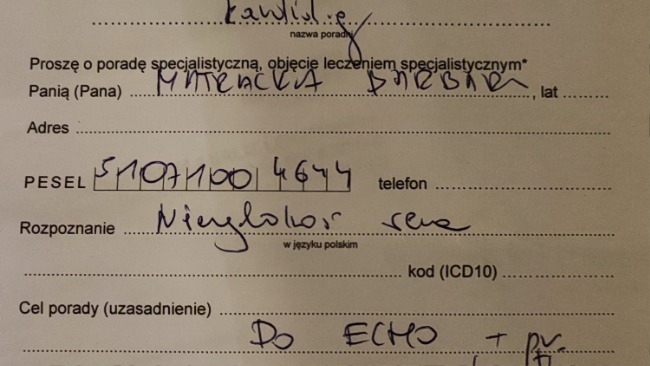 nazwa poradni
Proszę o poradę specjalistyczną, objęcie leczeniem specjalistycznym*
Panią (Pana) MATRACKA BARBARA, lat
Adres
PESEL 51071004644 telefon
Rozpoznanie
w języku polskim
kod (ICD10)
Cel porady (uzasadnienie)
DO ECHO +